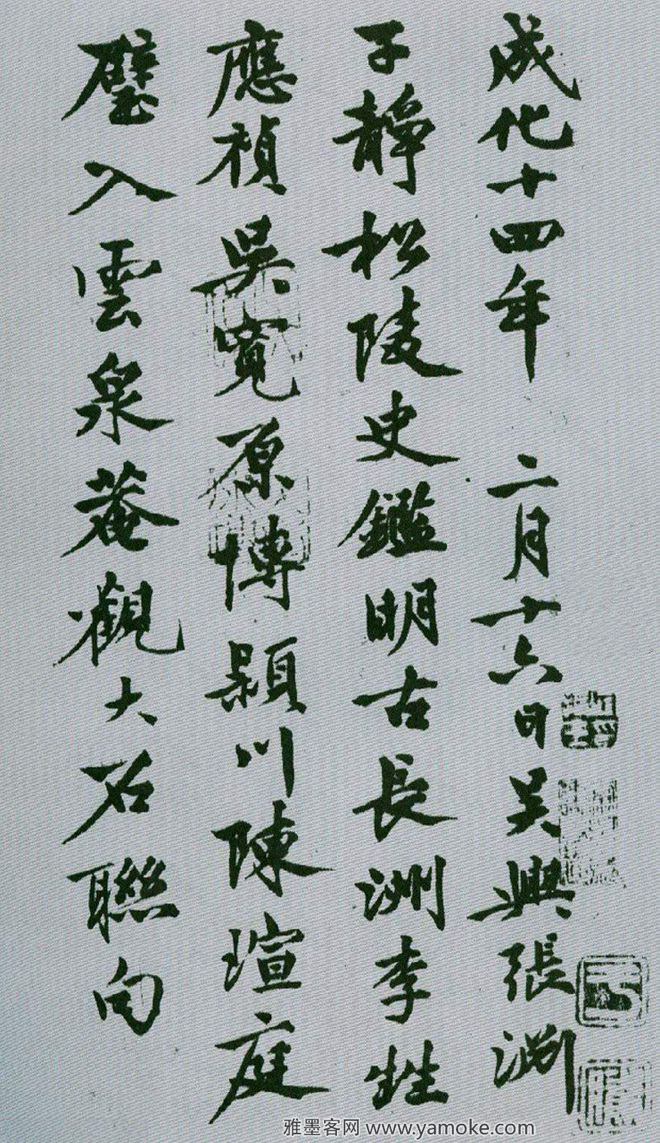 成化十四年 二月十六日吴興張渊
子静松陵史鑑明古長洲李甡
應禎吳寬原博潁川陳瑄庭
璧入雲泉菴觀大石聯句
雅墨客网 www.yamoke.com